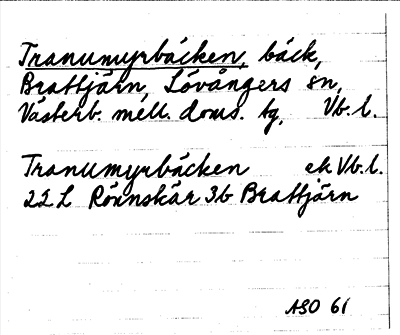 Tranumyrbäcken, bäck,
Brattjärn, Lövångers sn,
Västerb. mell. doms. tg, Vb. l.
Tranumyrbäcken ek Vb. l.
22 L Rönnskär 3b Brattjärn
ASO 61